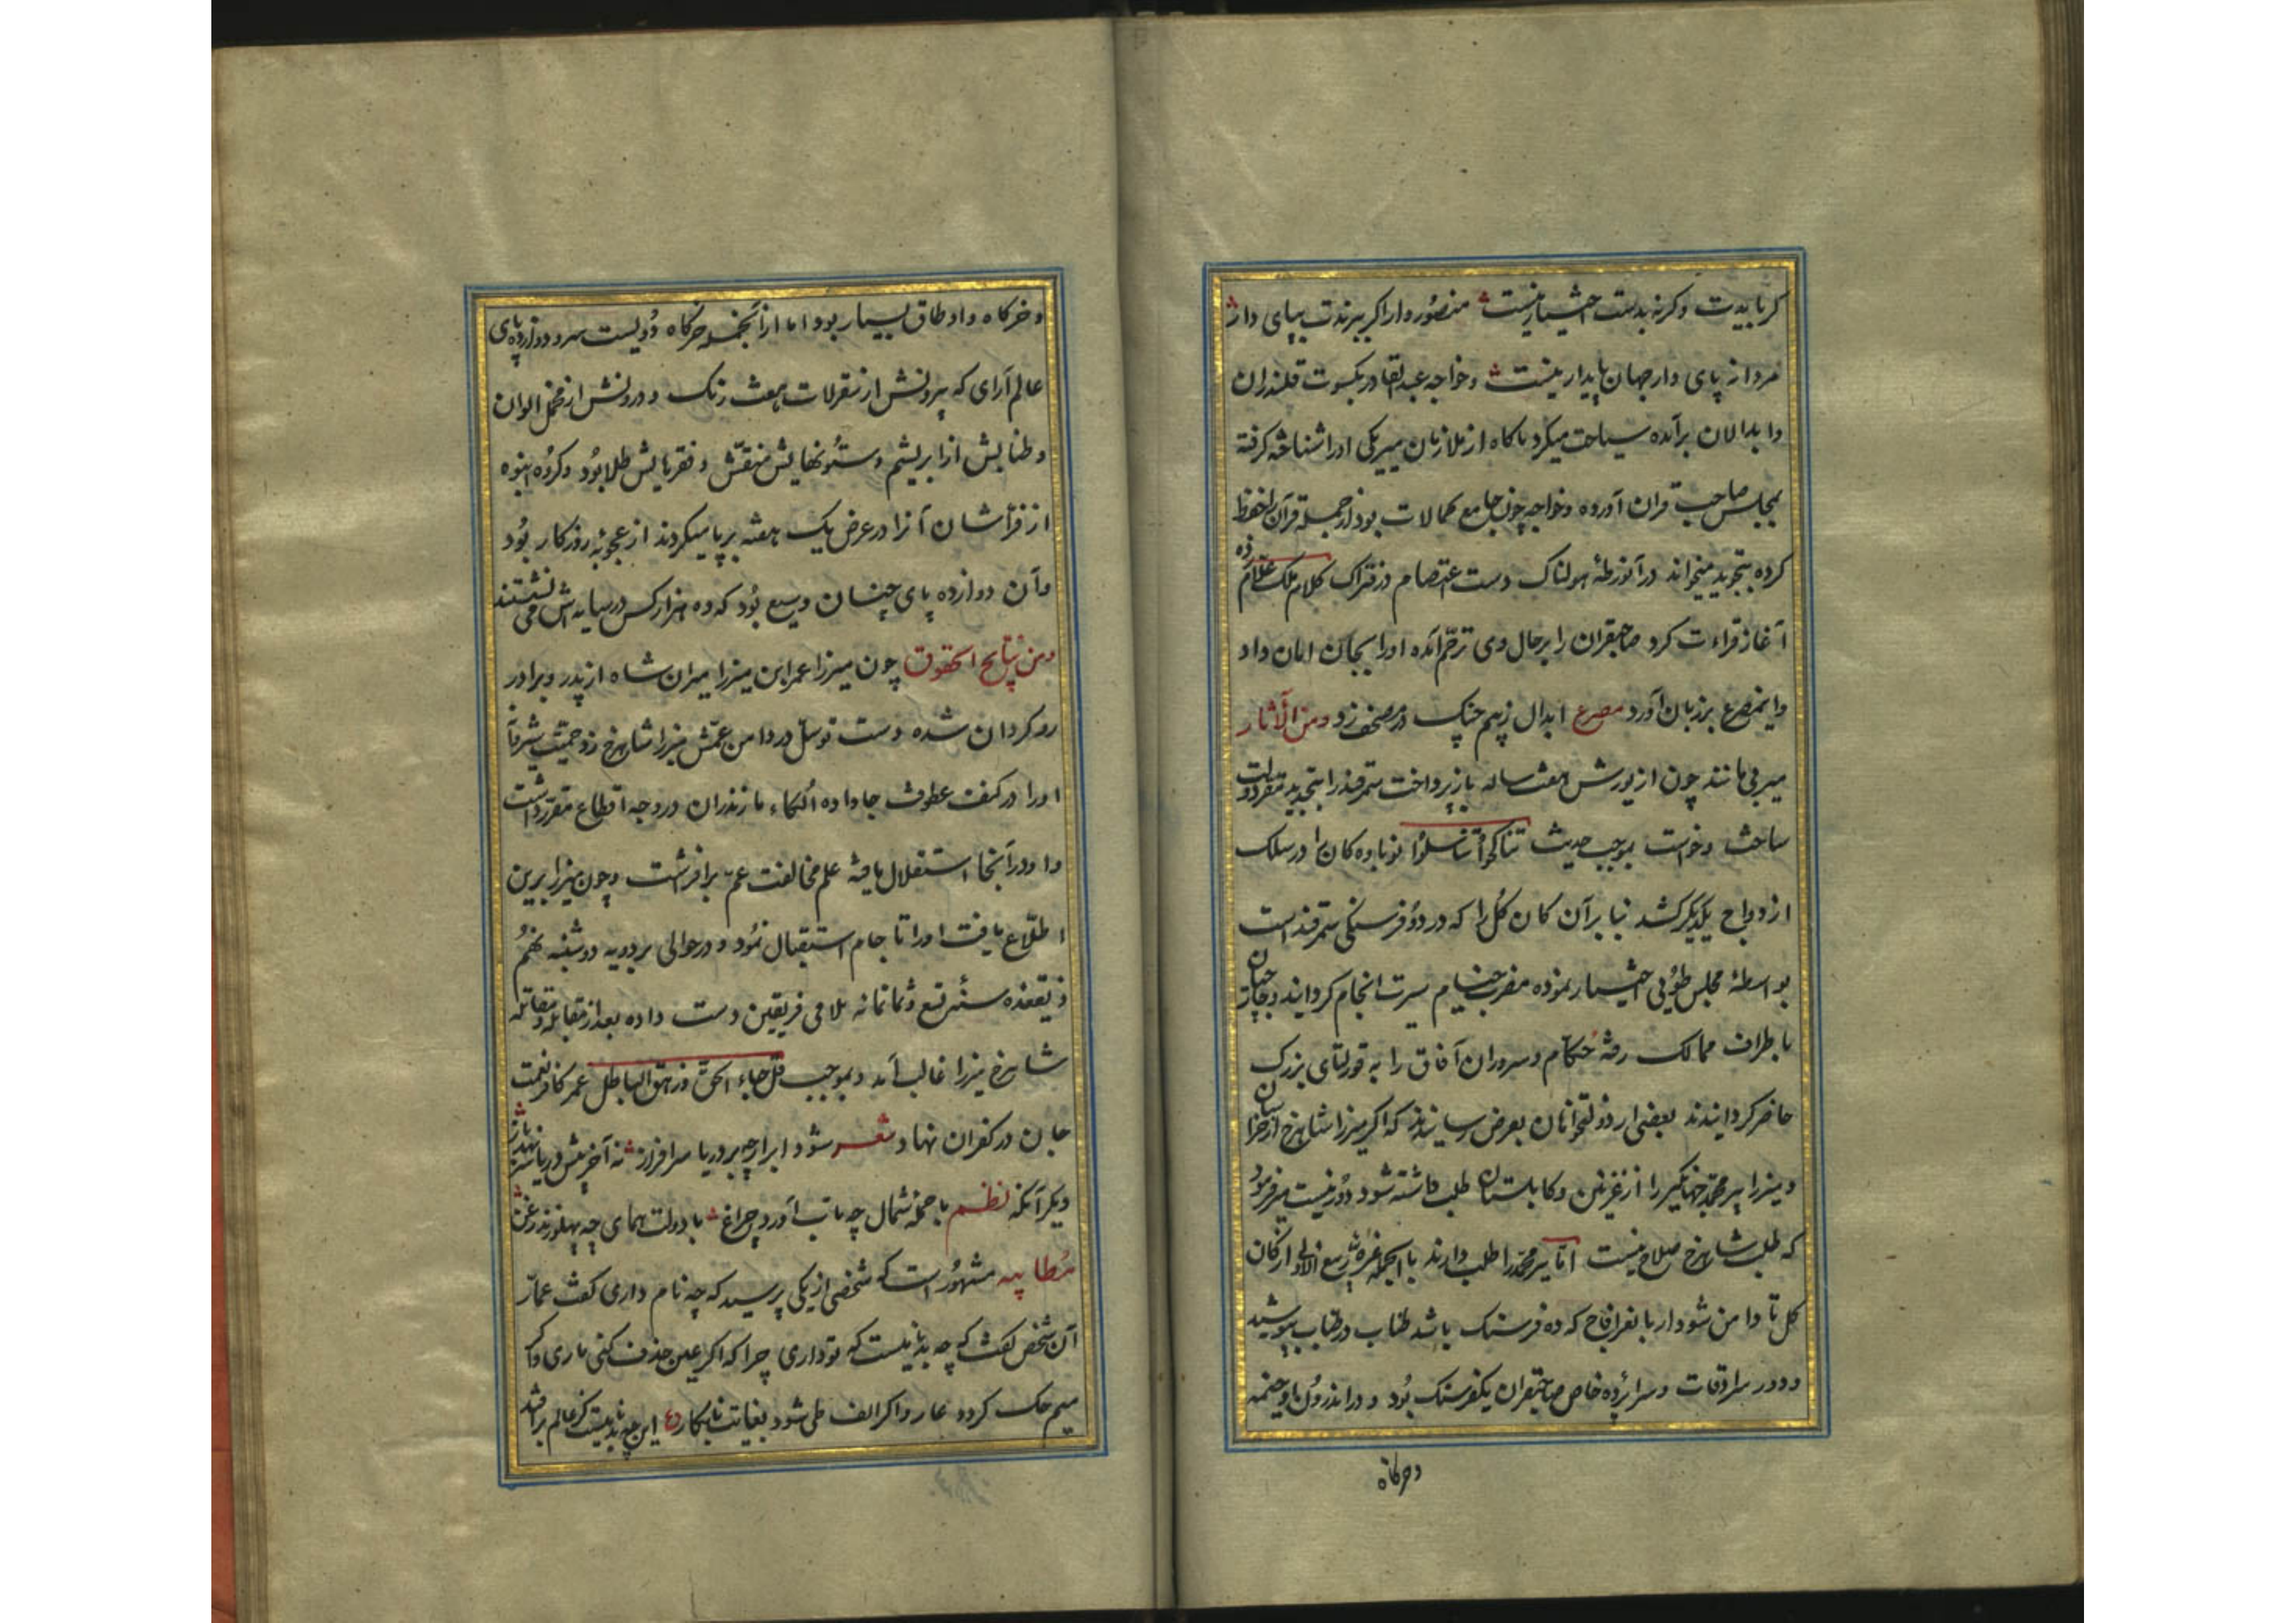 کر نابیدت وکرنه بدست اختیار نیست منصور وار اکر ببرندت بپای دار
مردانه پای دار جهان پایدار نیست وخواجه عبدالقادر بکسوت قلندران
وابدالان برآمده سیاحت میکرد ناکاه از ملازمان میر یکی اورا شناخته کرفته
بمجلس صاحب قران آورده وخواجه چون جامع کمالات بود از جمله قرآن را حفظ
کرده بتجوید میخواند درآنورطهٔ هولناک دست اعتصام در فتراک کلام ملک علام زده
آغاز قراءت کرد صاحبقران را برحال وی ترحّم آمده اورا بجان امان داد
واینمصرع بر زبان آورد مصرع ابدال زبیم چنک در مصحف زد ومن الآثار
میر فی مانند چون از یورش هفت ساله باز پرداخت سمرقند را بتجدید مقر دولت
ساخت وخواست بموجب حدیث تناکحوا تناسلوا نوباوه کان را در سلک
ازدواج یکدیکر کشد بنا برآن کان کل را که در دو فرسنکی سمرقند است
بواسطهٔ مجلس طوی اختیار نموده مضرب خیام مسرت انجام کردانید وجاپاران
باطراف ممالک رفته حکّام وسروران آفاق را به قورلتای بزرک
حاضر کردانیدند بعضی از دولتخواهان بعرض رسانیدند که اکر میرزا شاهرخ از خراسان
ومیرزا پیر محمد جهانکیر را از غزنین وکابلستان طلب داشته شود دور نیست میر فرمود
که طلب شاهرخ صلاح نیست امّا پیر محمد را طلب دارند بالجمله غرهٔ ربیع الاول از کان
کل تا دامن شودار با نفرافاح که ده فرسنک باشد طناب در طناب پیوشید
ودور سرادقات وسراپرده خاص صاحبقران یکفرسنک بود ودر اندرون او خیمه
وخرکاه
وخرکاه واوطاق بسیار بود اما از آنجمله خرکاه دویست سر ودوازده پای
عالم آرای که بیرونش از سقرلات هفت رنک ودرونش از مخمل الوان
وطنابش از ابریشم وستونهایش منقّش وقرهایش طلا بود وکروه انبوه
از فرّاشان آنرا در عرض یک هفته برپا میکردند از عجوبهٔ روزکار بود
وآن دوازده پای چنان وسیع بود که ده هزار کس در سایه اش می نشستند
ومن نتایج الحقوق چون میرزا عمر ابن میرزا میران شاه از پدر وبرادر
روکردان شده دست توسّل در دامن عمّش میرزا شاهرخ زد حمیّت میرزا
اورا در کنف عطوفت جا داده الکاء مازندران در وجه اقطاع مقرر داشت
واو درآنجا استقلال یافته علم مخالفت عم برافراشت وچون میرزا برین
اطلاع یافت اورا تا جام استقبال نمود ودر حوالی بردویه دوشنبه نهم
ذیقعده سنه تسع وثمانمائه تلاقی فریقین دست داده بعد از مقابله ومقاتله
شاهرخ میرزا غالب آمد وبموجب قل جاء الحق وزهق الباطل عمر کافر نعمت
جان در کفران نهاد شعر شود ابر ارچه بر دریا سرافراز نه آخر پیش دریا سر نهد باز
دیکر آنکه نظم با حملهٔ شمال چه تاب آورد چراغ با دولت همای چه پهلو زند زغن
مطایبه مشهور است که شخصی از یکی پرسید که چه نام داری کفت عمّار
آن شخص کفت که چه بد نامیست که تو داری چرا که اکر عین حذف کنی ماری واکر
میم حک کردد عار واکر الف طی شود بغایت نابکار ع این چه نامیست کز عالم برافتد